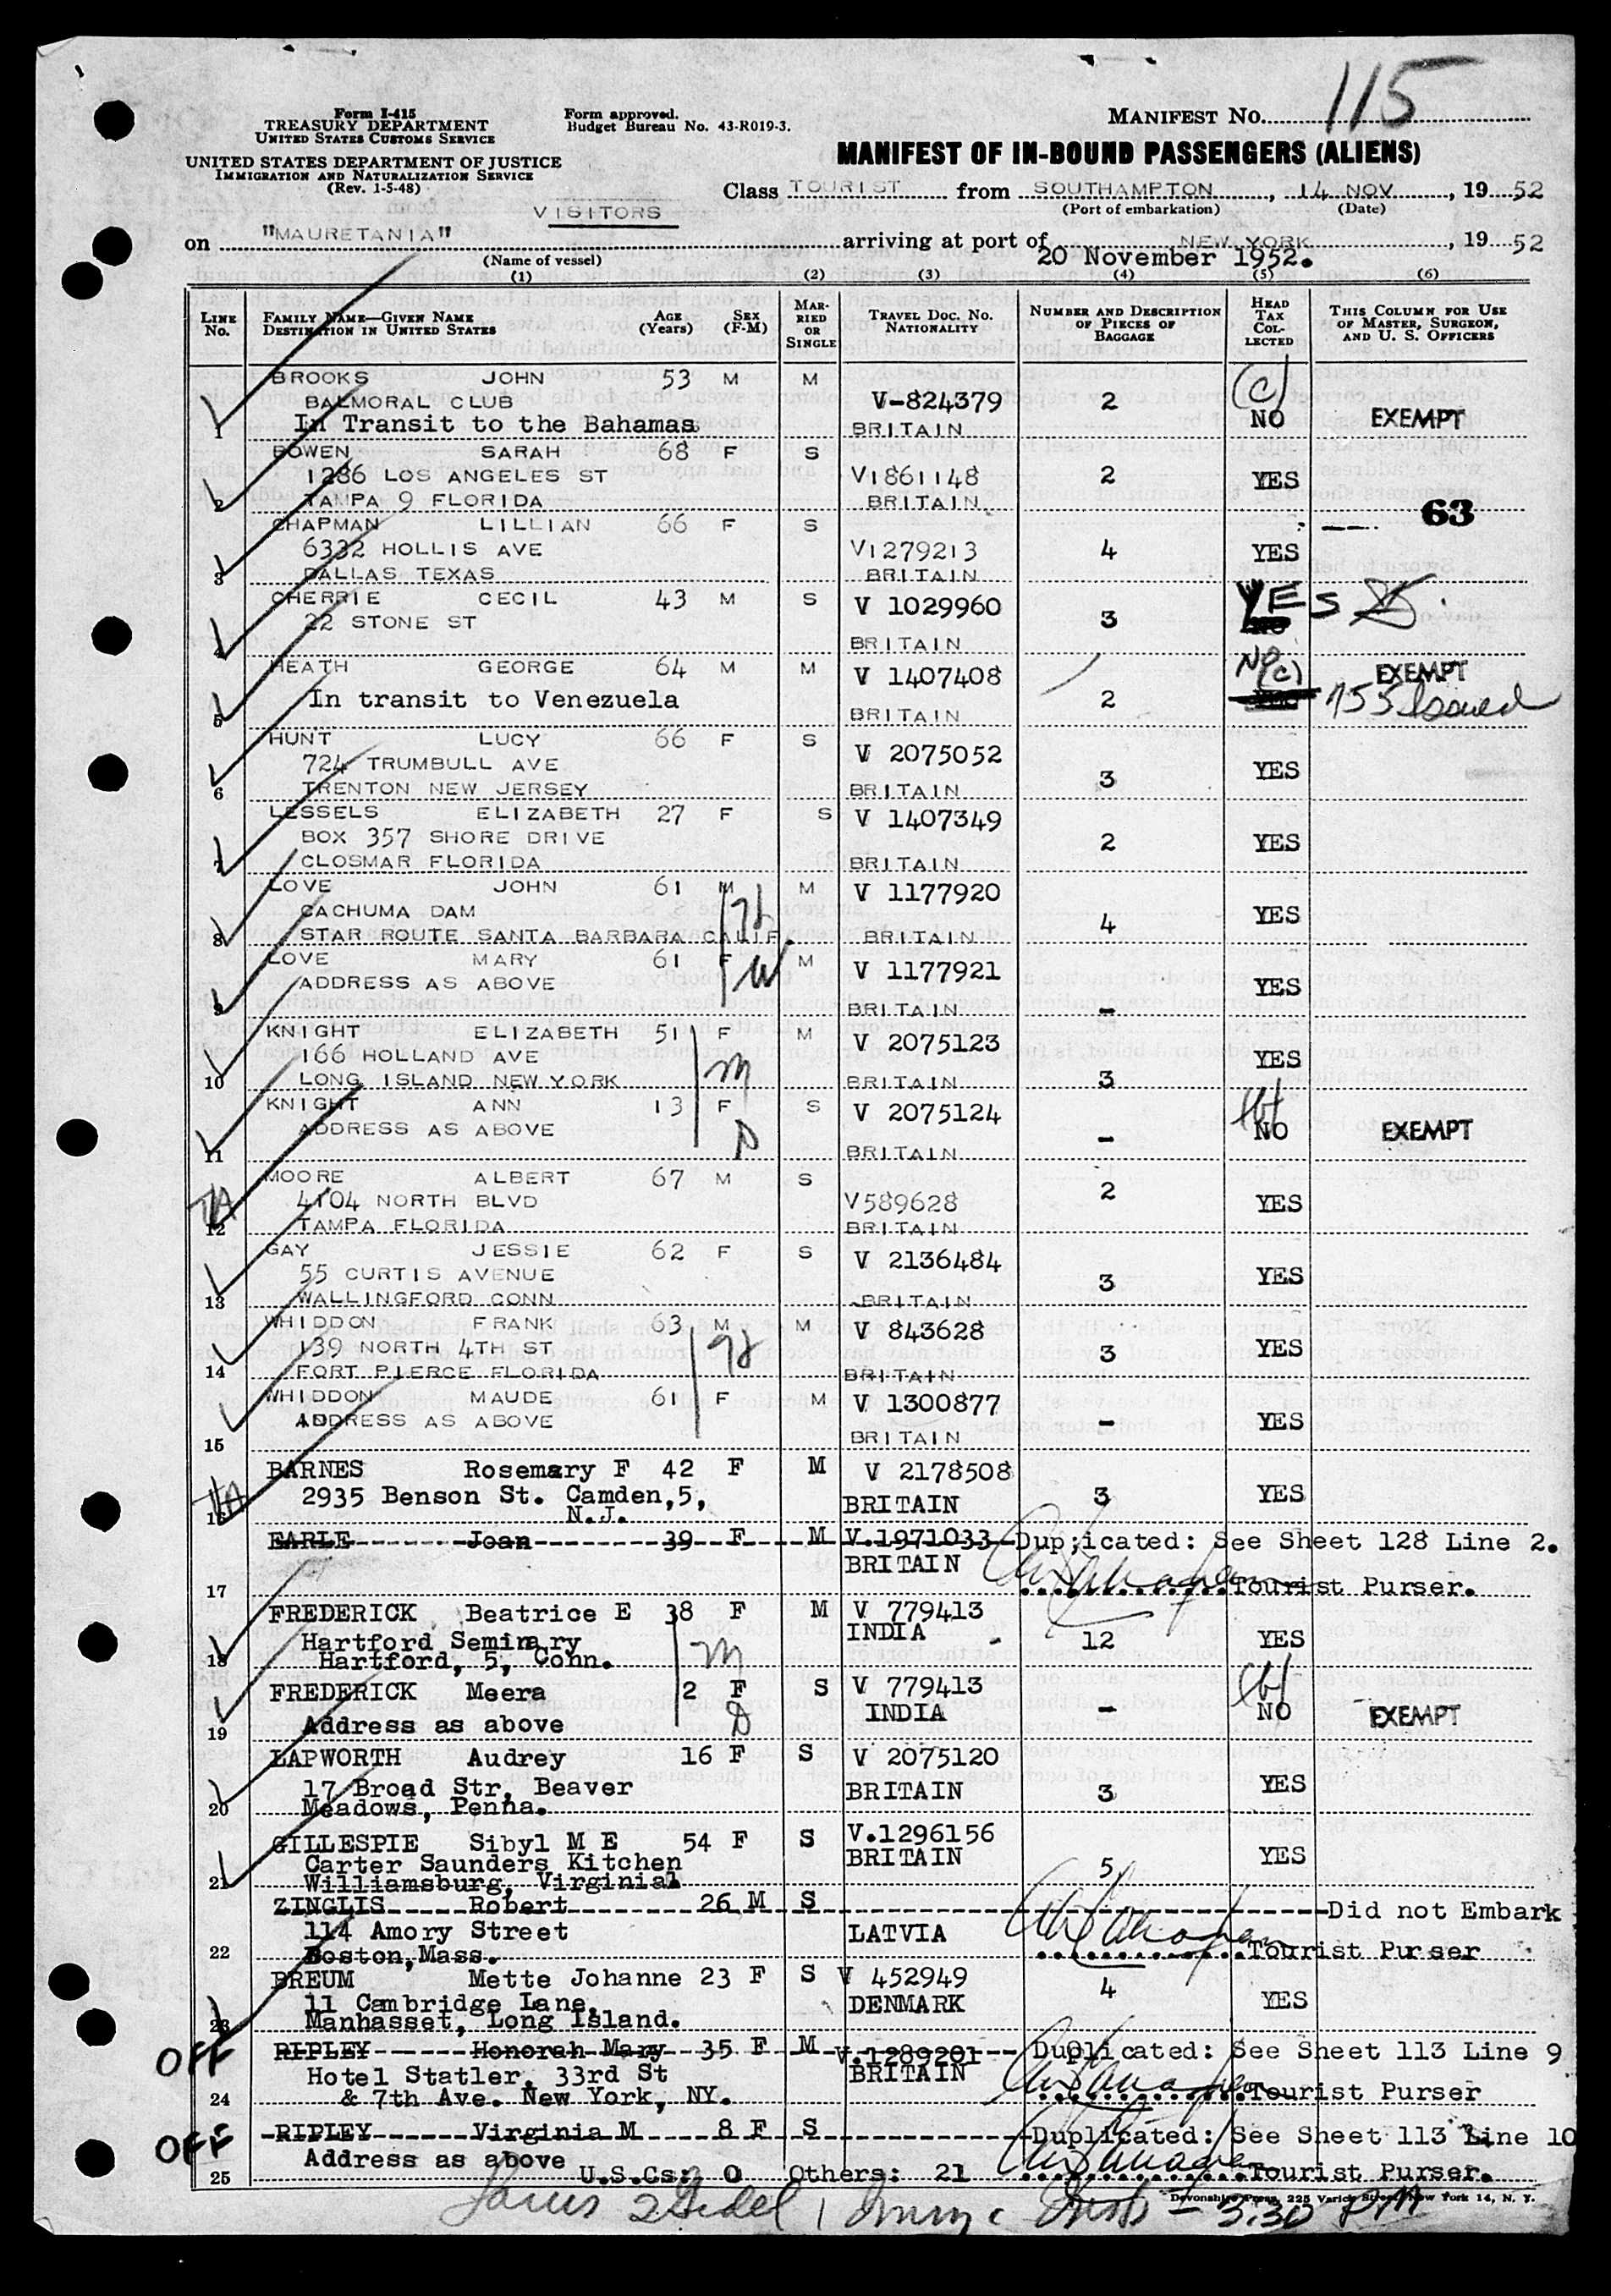 115
Form I-415
TREASURY DEPARTMENT
UNITED STATES CUSTOMS SERVICE
Form approved.
Budget Bureau No. 43-R019-3.
MANIFEST No.
UNITED STATES DEPARTMENT OF JUSTICE
IMMIGRATION AND NATURALIZATION SERVICE
(Rev. 1-5-48)
MANIFEST OF IN-BOUND PASSENGERS (ALIENS)
Class TOURIST from SOUTHAMPTON, 14 NOV, 19 52
(Port of embarkation) (Date)
VISITORS
on "MAURETANIA" arriving at port of NEW YORK, 19 52
(Name of vessel) 20 November 1952.
(1) (2) (3) (4) (5) (6)
LINE No. FAMILY NAME—GIVEN NAME DESTINATION IN UNITED STATES AGE (Years) SEX (F-M) MARRIED OR SINGLE TRAVEL DOC. NO. NATIONALITY NUMBER AND DESCRIPTION OF PIECES OF BAGGAGE HEAD TAX COLLECTED THIS COLUMN FOR USE OF MASTER, SURGEON, AND U. S. OFFICERS
BROOKS JOHN 53 M M (c)
BALMORAL CLUB V-824379 2
1 In Transit to the Bahamas BRITAIN NO EXEMPT
BOWEN SARAH 68 F S
1286 LOS ANGELES ST V1861148 2 YES
2 TAMPA 9 FLORIDA BRITAIN 63
CHAPMAN LILLIAN 66 F S
6332 HOLLIS AVE V1279213 4 YES
3 DALLAS TEXAS BRITAIN
CHERRIE CECIL 43 M S V 1029960 YES
22 STONE ST 3
4 BRITAIN
HEATH GEORGE 64 M M V 1407408 NO (c) EXEMPT
In transit to Venezuela 2 155 Issued
5 BRITAIN
HUNT LUCY 66 F S V 2075052
724 TRUMBULL AVE YES
6 TRENTON NEW JERSEY BRITAIN 3
LESSELS ELIZABETH 27 F S V 1407349
BOX 357 SHORE DRIVE 2 YES
7 CLOSMAR FLORIDA BRITAIN
LOVE JOHN 61 M M V 1177920
CACHUMA DAM 4 YES
8 STAR ROUTE SANTA BARBARA CALIF. BRITAIN
LOVE MARY 61 F M V 1177921
ADDRESS AS ABOVE W YES
9 BRITAIN -
KNIGHT ELIZABETH 51 F M V 2075123
166 HOLLAND AVE M YES
10 LONG ISLAND NEW YORK BRITAIN 3
KNIGHT ANN 13 F S V 2075124
ADDRESS AS ABOVE D - NO EXEMPT
11 BRITAIN
MOORE ALBERT 67 M S 2
4104 NORTH BLVD V589628 YES
12 TAMPA FLORIDA BRITAIN
GAY JESSIE 62 F S V 2136484
55 CURTIS AVENUE 3 YES
13 WALLINGFORD CONN BRITAIN
WHIDDON FRANK 63 M M V 843628
139 NORTH 4TH ST 3 YES
14 FORT PIERCE FLORIDA BRITAIN
WHIDDON MAUDE 61 F M V 1300877
ADDRESS AS ABOVE - YES
15 BRITAIN
BARNES Rosemary F 42 F M V 2178508
2935 Benson St. Camden,5, BRITAIN 3 YES
16 N.J.
EARLE Joan 39 F M V.1971033 Dup;icated: See Sheet 128 Line 2.
BRITAIN
17 Tourist Purser.
FREDERICK Beatrice E 38 F M V 779413
Hartford Seminary INDIA 12 YES
18 Hartford, 5, Conn. M
FREDERICK Meera 2 F S V 779413
19 Address as above D INDIA - NO EXEMPT
LAPWORTH Audrey 16 F S V 2075120
17 Broad Str, Beaver BRITAIN 3 YES
20 Meadows, Penna.
GILLESPIE Sibyl M E 54 F S V.1296156
Carter Saunders Kitchen BRITAIN 5 YES
21 Williamsburg, Virginial
ZINGLIS Robert 26 M S Did not Embark
114 Amory Street LATVIA
22 Boston,Mass. Tourist Purser
BREUM Mette Johanne 23 F S V 452949 4
11 Cambridge Lane, DENMARK YES
23 Manhasset, Long Island.
OFF RIPLEY Honorah Mary 35 F M V.1289201 Duplicated: See Sheet 113 Line 9
Hotel Statler, 33rd St BRITAIN
24 & 7th Ave. New York, NY. Tourist Purser
OFF RIPLEY Virginia M 8 F S Duplicated: See Sheet 113 Line 10
Address as above
25 U.S.Cs: 0 Others: 21 Tourist Purser.
Devonshire Press, 225 Varick Street, New York 14, N. Y.
3.30 PM